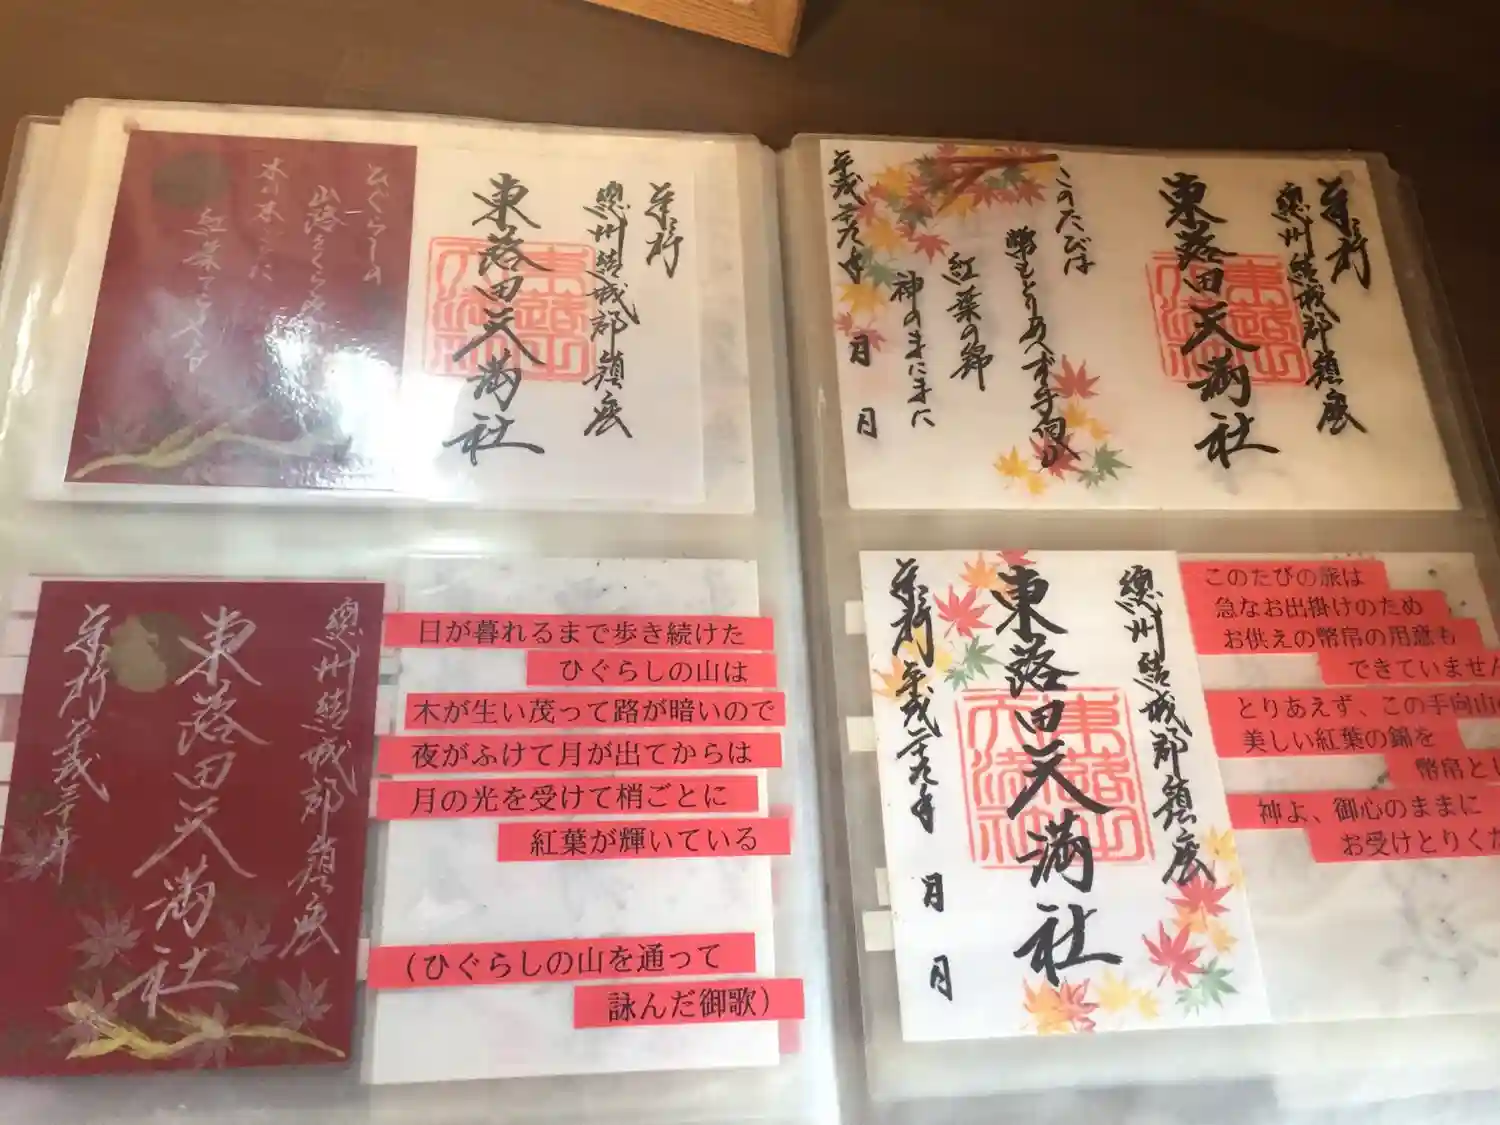 奉拝
總州結城郡鎮座
東蕗田天満社
ひぐらしの
山路をくらみ
木の末ごとに
紅葉てらせる
奉拝
總州結城郡鎮座
東蕗田天満社
このたびは
幣もとりあへず手向山
紅葉の錦
神のまにまに
平成二十九年 月 日
總州結城郡鎮座
東蕗田天満社
奉拝 平成三十年
日が暮れるまで歩き続けた
ひぐらしの山は
木が生い茂って路が暗いので
夜がふけて月が出てからは
月の光を受けて梢ごとに
紅葉が輝いている
(ひぐらしの山を通って
詠んだ御歌)
總州結城郡鎮座
東蕗田天満社
奉拝 平成二十九年 月 日
このたびの旅は
急なお出掛けのため
お供えの幣帛の用意も
できていません
とりあえず、この手向山の
美しい紅葉の錦を
幣帛とし
神よ、御心のままに
お受けとりくだ